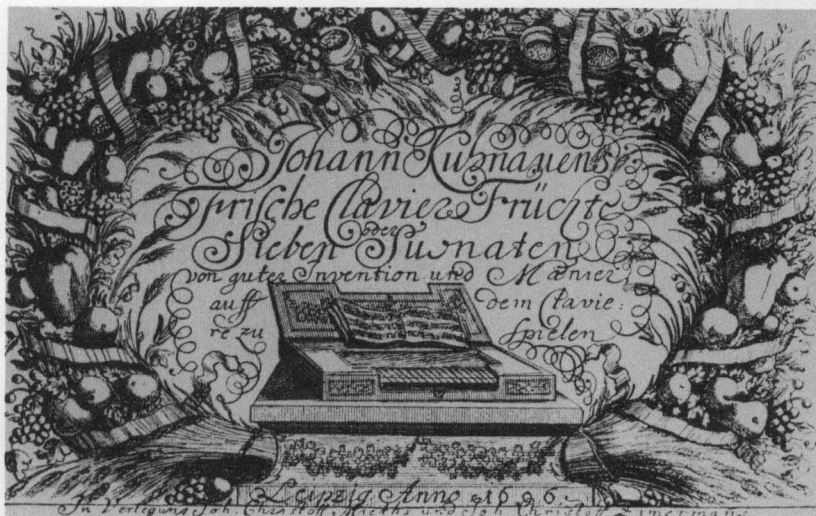 Johann Kuhnauens
Frische Clavier Früchte
oder
Sieben Suonaten
von guter Invention und Manier
auff dem Clavie:
re zu spielen
Leipzig Anno 1696.
In Verlegung Joh. Christoff Mieths und Joh Christoff Zimermans